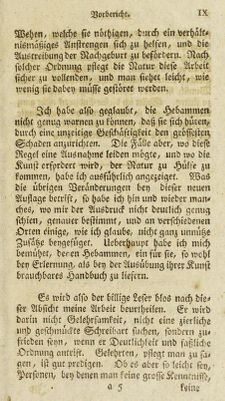 Vorbericht. IX
Wehen, welche sie nöthigen, durch ein verhält-
nismäßiges Anstrengen sich zu helfen, und die
Austreibung der Nachgeburt zu befördern. Nach
solcher Ordnung pflegt die Natur diese Arbeit
sicher zu vollenden, und man siehet leicht, wie
wenig sie dabey müsse gestöret werden.
Ich habe also geglaubt, die Hebammen
nicht genug warnen zu können, daß sie sich hüten,
durch eine unzeitige Geschäftigkeit den grössesten
Schaden anzurichten. Die Fälle aber, wo diese
Regel eine Ausnahme leiden mögte, und wo die
Kunst erfordert wird, der Natur zu Hülfe zu
kommen, habe ich ausführlich angezeiget. Was
die übrigen Veränderungen bey dieser neuen
Auflage betrift, so habe ich hin und wieder man-
ches, wo mir der Ausdruck nicht deutlich genug
schien, genauer bestimmt, und an verschiedenen
Orten einige, wie ich glaube, nicht ganz unnütze
Zusätze beygefüget. Ueberhaupt habe ich mich
bemühet, deren Hebammen, ein für sie, so wohl
bey Erlernung, als bey der Ausübung ihrer Kunst
brauchbares Handbuch zu liefern.
Es wird also der billige Leser blos nach die-
ser Absicht meine Arbeit beurtheilen. Er wird
darin nicht Gelehrsamkeit, nicht eine zierliche
und geschmückte Schreibart suchen, sondern zu-
frieden seyn, wenn er Deutlichkeit und faßliche
Ordnung antrift. Gelehrten, pflegt man zu sa-
gen, ist gut predigen. Ob es aber so leicht sey,
Personen, bey denen man keine grosse Kenntnisse,
a 5 keine